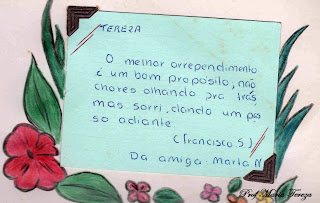 TEREZA
O melhor arrependimento
é um bom propósito; não
chores olhando pra trás
mas sorri, dando um pas
so adiante.
(Francisco S.)
Da amiga: Marta N
Prof Maria Tereza